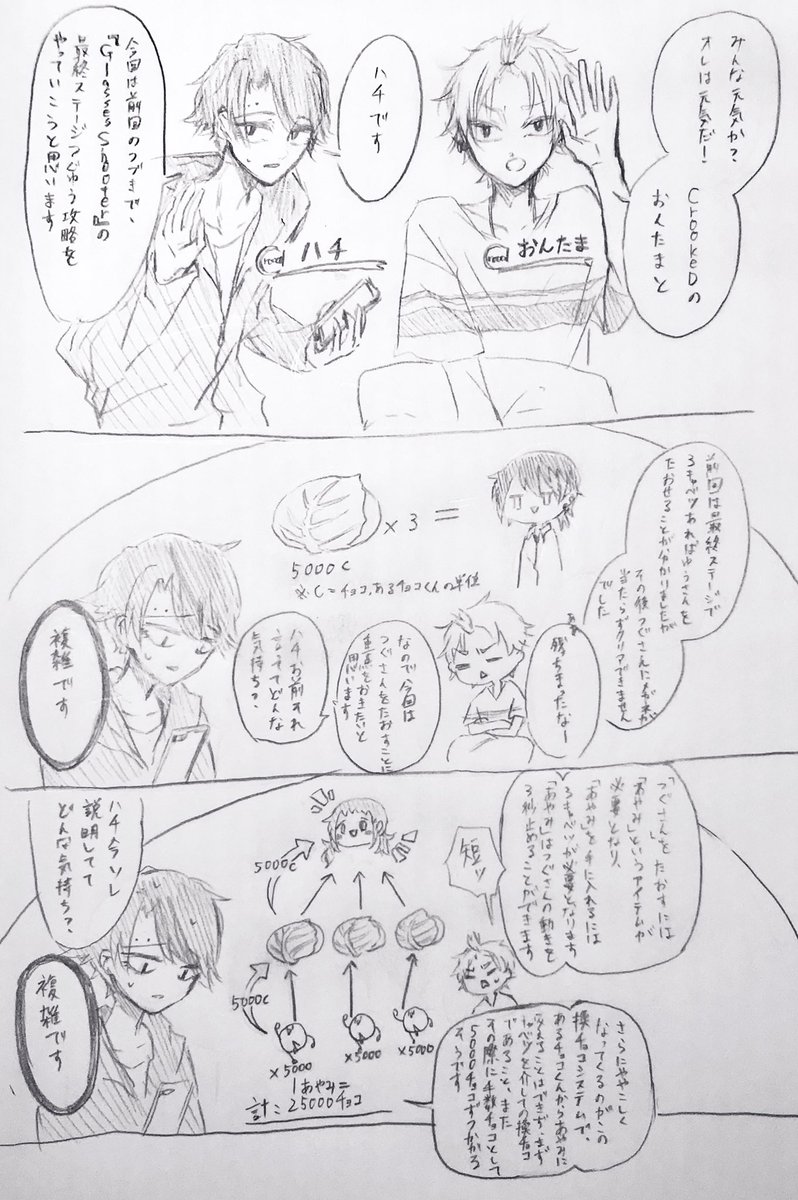 みんな元気か?
オレは元気だ!
CrookeDの
おんたまと
ハチです
今回は前回のつづきで、
『Glasses Shooter』の
最終ステージつぐゆう攻略を
やっていこうと思います
おんたま
ハチ
前回は最終ステージで
3キャベツあればゆうさんを
たおせることが分かりましたが
その後つぐさんにメガネが
当たらずクリアできません
でした
×3=
5000C
※C=チョコ、あるチョコくんの単位
勝ちまったなー
なので今回は
つぐさんをたおすことに
重点をおきたいと
思います
ハチお前それ
言っててどんな
気持ち?
複雑です
「つぐさん」をたおすには
「あやみ」というアイテムが
必要となり、
「あやみ」を手に入れるには
3キャベツが必要となります
「あやみ」はつぐさんの動きを
3秒止めることができます
短ッ
さらにややこしく
なってくるのがこの
換チョコシステムで、
あるチョコくんからあやみに
変えることはできず、まず
キャベツを介しての換チョコ
であること、また
その際に手数チョコとして
5000チョコずつかかる
そうです
5000C
5000C
×5000
×5000
×5000
1あやみ=
計:25000チョコ
ハチ今ソレ
説明してて
どんな気持ち?
複雑です